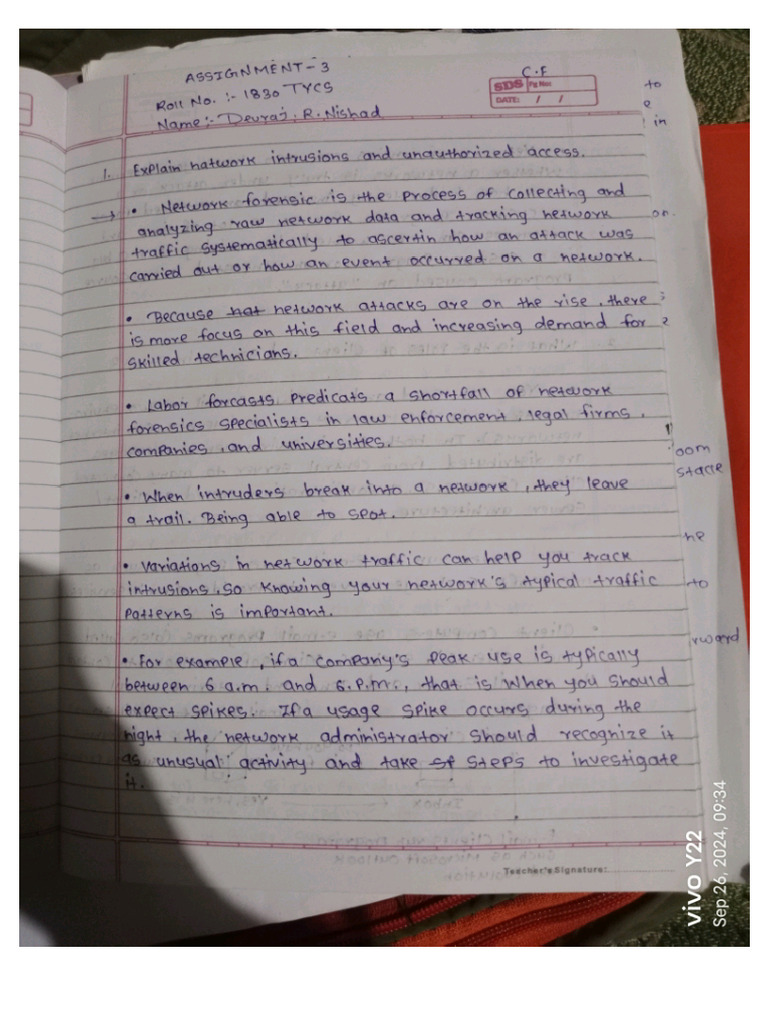 ASSIGNMENT-3
C.F
Roll No. :- 1830 TYCS
SDS Pg No:
DATE: / /
Name:- Devraj. R. Nishad
1. Explain natwork intrusions and unauthorized access.
→ • Network forensic is the process of collecting and
analyzing raw network data and tracking network
traffic systematically to ascertin how an attack was
carried out or how an event occurred on a network.
• Because nat network attacks are on the rise, there
is more focus on this field and increasing demand for
skilled technicians.
• Labor forcasts predicats a shortfall of network
forensics specialists in law enforcement, legal firms,
companies, and universities.
• When intruders break into a network, they leave
a trail. Being able to spot.
• Variations in network traffic can help you track
intrusions, so knowing your network's typical traffic
patterns is important.
• For example, if a company's peak use is typically
between 6 a.m. and 6.P.m., that is when you should
expect spikes. If a usage spike occurs during the
night, the network administrator should recognize it
as unusual activity and take st steps to investigate
it.
Teacher's Signature:
to
e
in
on.
oom
stacle
he
to
rward
vivo Y22
Sep 26, 2024, 09:34